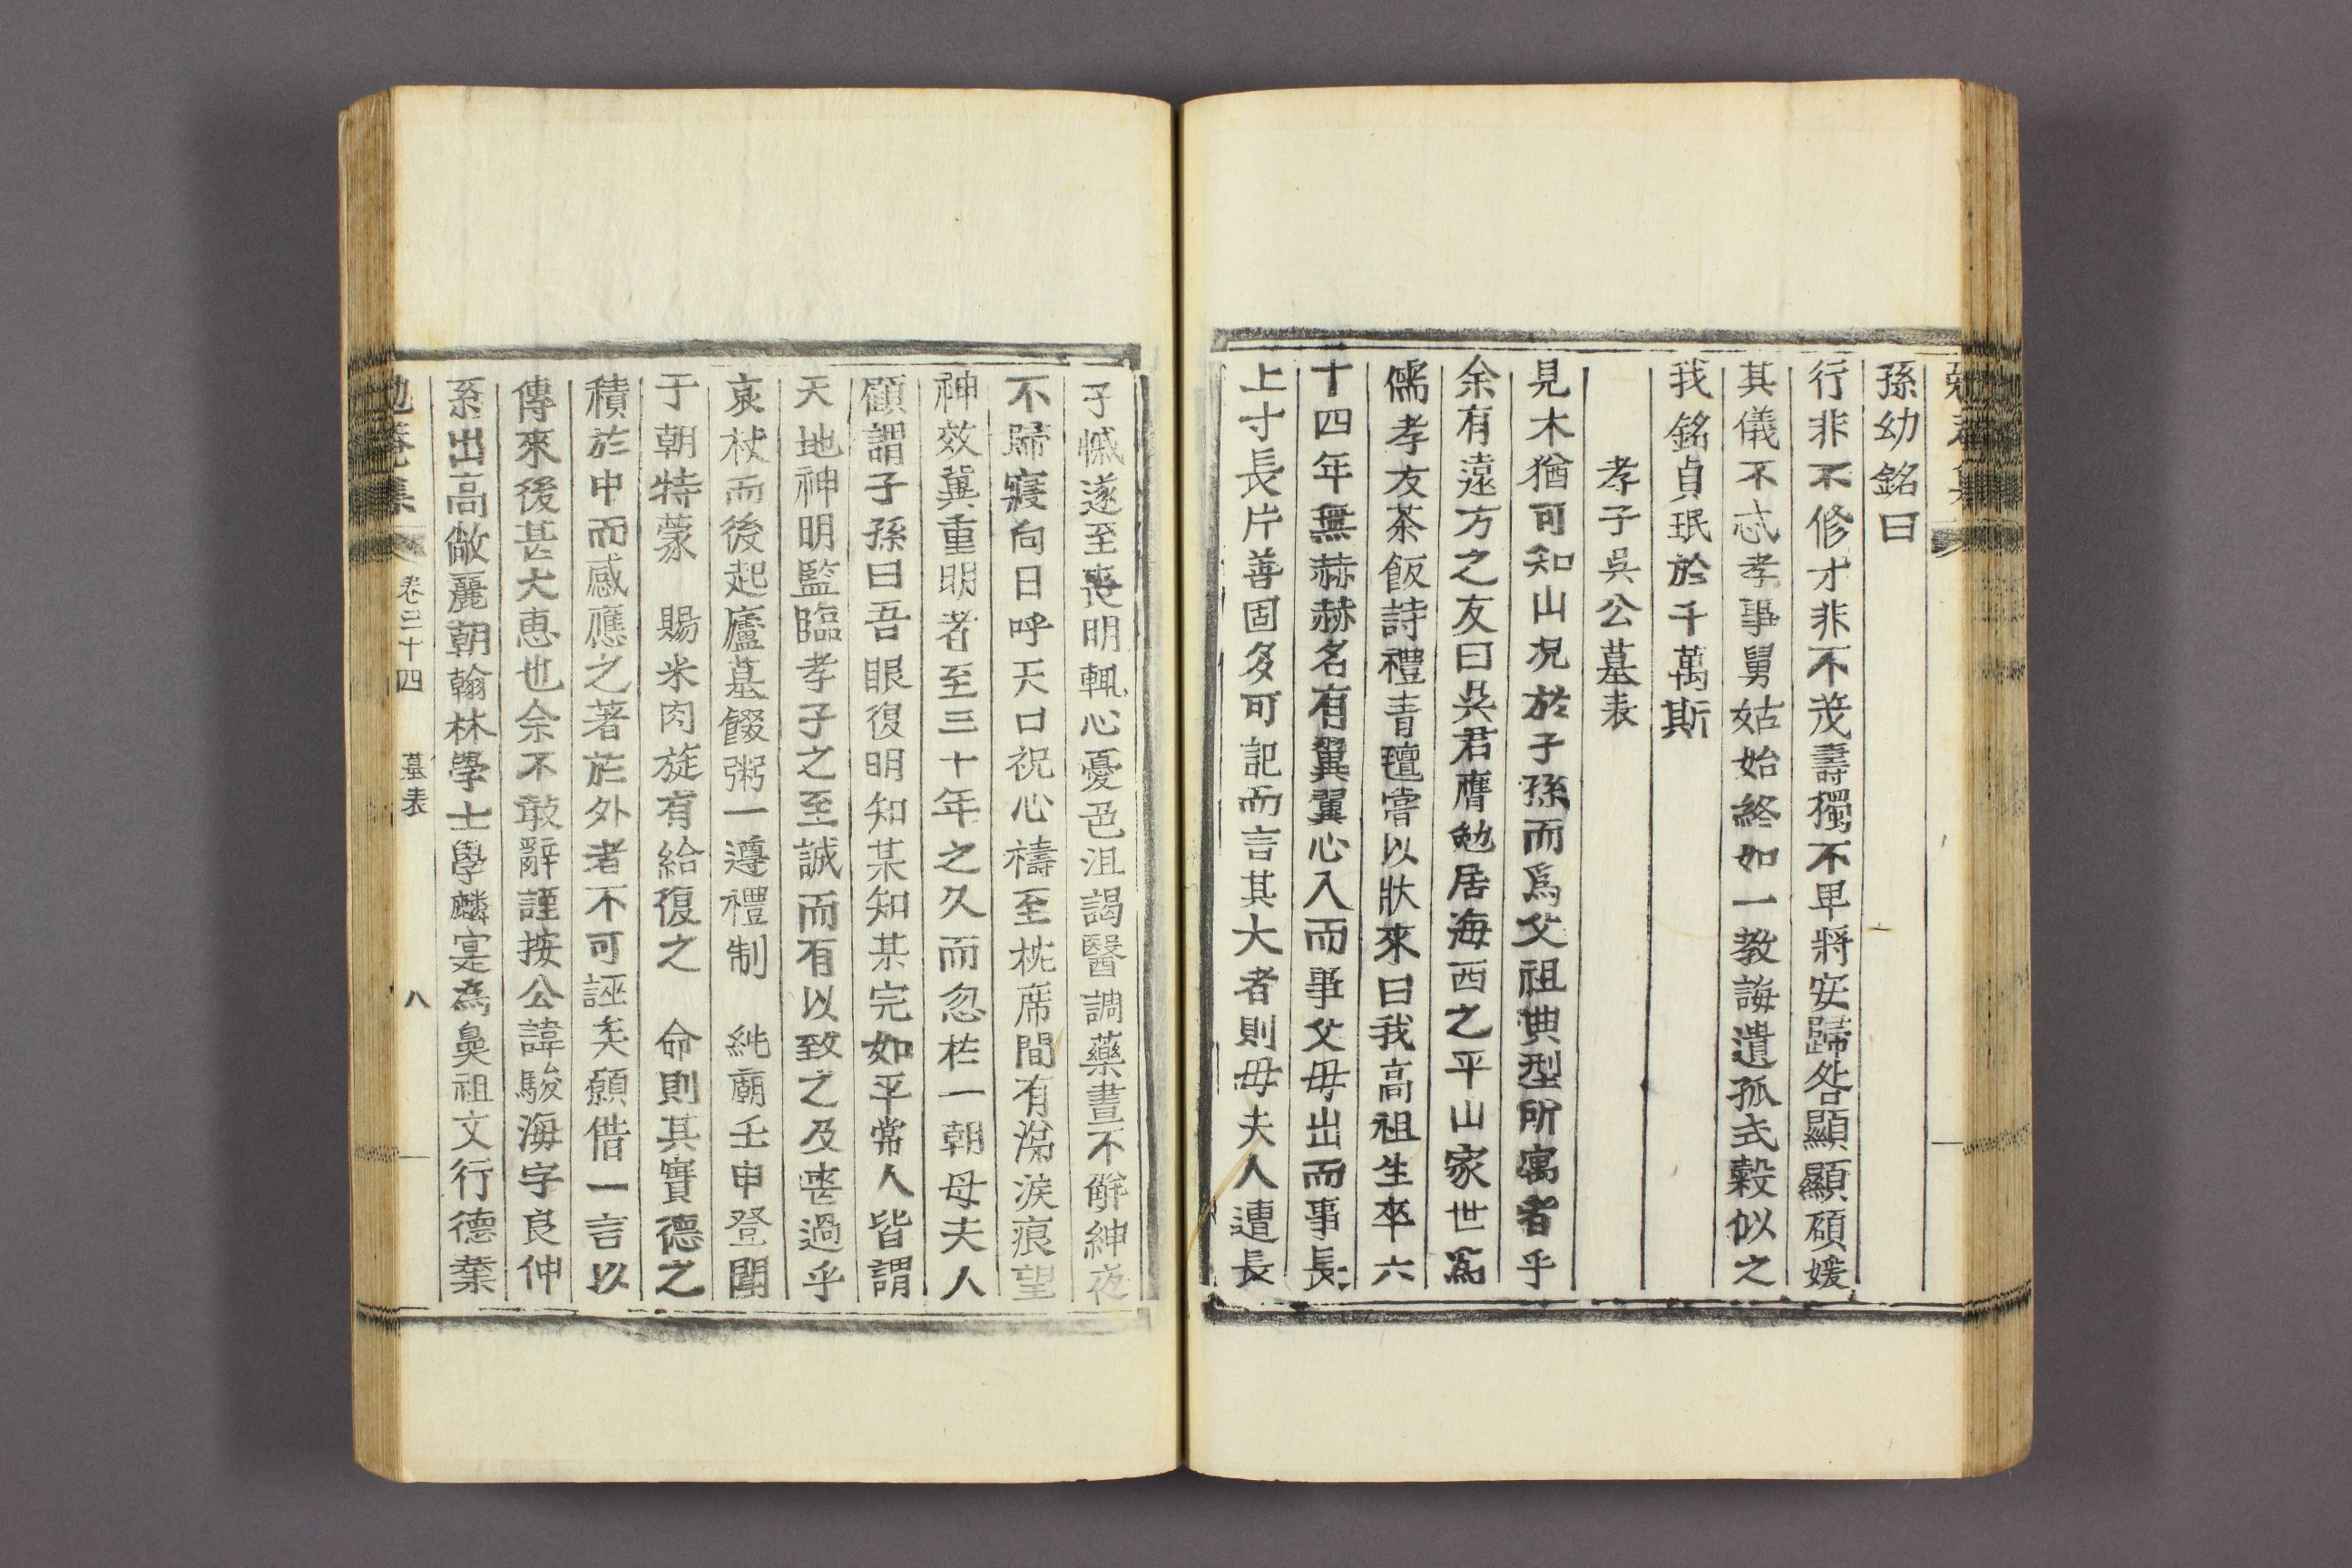 孫幼銘曰
行非不修才非不茂壽獨不早將安歸咎顯顯碩媛
其儀不忒孝事舅姑始終如一教誨遺孤式穀似之
我銘貞珉於千萬斯
孝子吳公墓表
見木猶可知山况於子孫而爲父祖典型所寓者乎
余有遠方之友曰吳君膺勉居海西之平山家世爲
儒孝友茶飯詩禮青氊嘗以狀來曰我高祖生卒六
十四年無赫赫名有翼翼心入而事父母出而事長
上寸長片善固多可記而言其大者則母夫人遭長
子慽遂至喪明輒心憂色沮謁醫調藥晝不解紳夜
不歸寢向日呼天口祝心禱至枕席間有㵢淚痕望
神效冀重明者至三十年之久而忽於一朝母夫人
顧謂子孫曰吾眼復明知某知某完如平常人皆謂
天地神明監臨孝子之至誠而有以致之及喪過乎
哀杖而後起廬墓餟粥一遵禮制 純廟壬申登聞
于朝特蒙 賜米肉旋有給復之 命則其實德之
積於中而感應之著於外者不可誣矣願借一言以
傳來後甚大惠也余不敢辭謹按公諱駿海字良仲
系出高敞麗朝翰林學士學麟寔為鼻祖文行德業
勉菴集 卷三十四 墓表 八